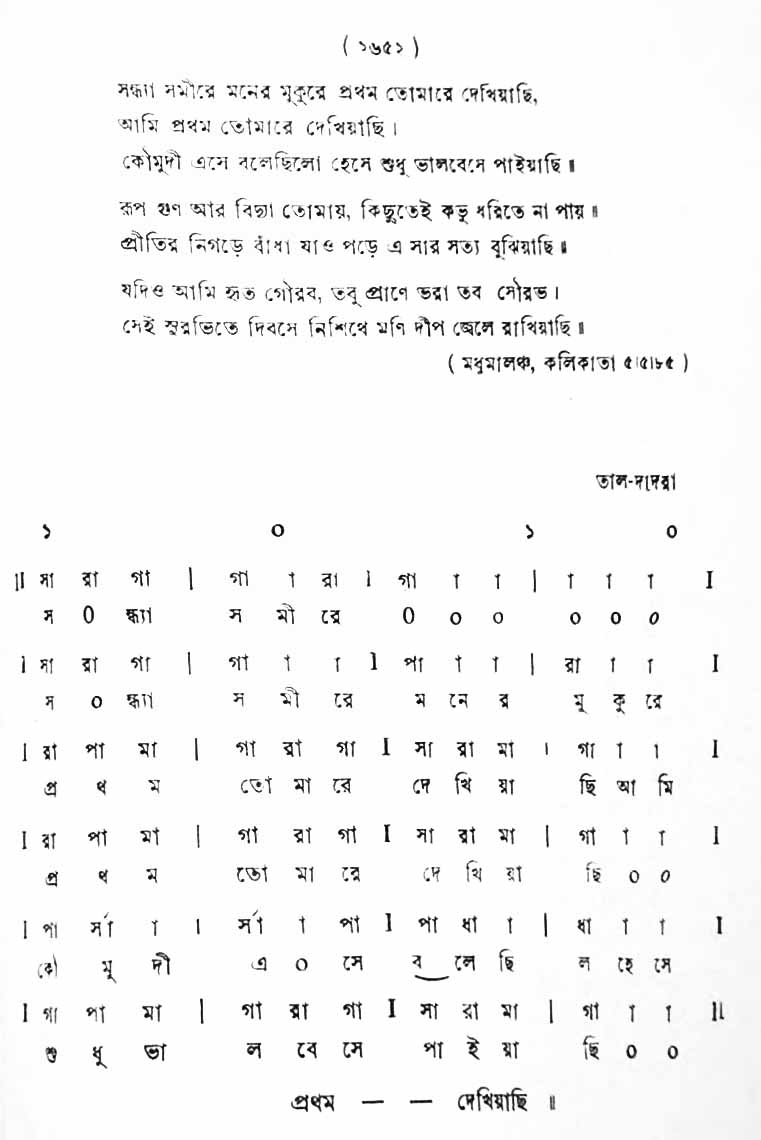 ( ১৬৫১ )
সন্ধ্যা সমীরে মনের মুকুরে প্রথম তোমারে দেখিয়াছি,
আমি প্রথম তোমারে দেখিয়াছি।
কৌমুদী এসে বলেছিলো হেসে শুধু ভালবেসে পাইয়াছি॥
রূপ গুণ আর বিদ্যা তোমায়, কিছুতেই কভু ধরিতে না পায়॥
প্রীতির নিগড়ে বাঁধা যাও পড়ে এ সার সত্য বুঝিয়াছি॥
যদিও আমি হৃত গৌরব, তবু প্রাণে ভরা তব সৌরভ।
সেই সুরভিতে দিবসে নিশিথে মণি দীপ জ্বেলে রাখিয়াছি॥
( মধুমালঞ্চ, কলিকাতা ৫।৫।৮৫ )
তাল-দাদরা
১ ০ ১ ০
II সা রা গা | গা া রা I গা া া | া া া I
স 0 ন্ধ্যা স মী রে 0 ০ ০ ০ ০ ০
I সা রা গা | গা া া I পা া া | রা া া I
স ০ ন্ধ্যা স মী রে ম নে র মু কু রে
I রা পা মা | গা রা গা I সা রা মা । গা া া I
প্র থ ম তো মা রে দে খি য়া ছি আ মি
I রা পা মা | গা রা গা I সা রা মা | গা া া I
প্র থ ম তো মা রে দে খি য়া ছি ০ ০
I পা র্সা া । র্সা া পা I পা ধা া | ধা া া I
কৌ মু দী এ ০ সে ব লে ছি ল হে সে
I গা পা মা | গা রা গা I সা রা মা | গা া া II
শু ধু ভা ল বে সে পা ই য়া ছি ০ ০
প্রথম — — দেখিয়াছি ॥